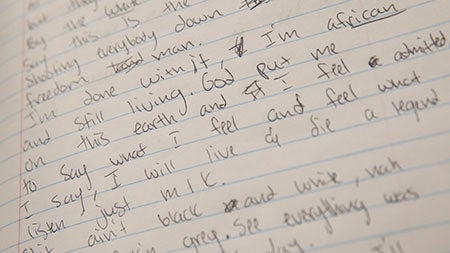 but they
By the weak
Say this is the
shooting everybody down to
freedom man.
I'm done with it, I'm african
and still living. God put me
on this earth and I feel admitted
to say what I feel and feel what
I say, I will live & die a legend
listen just mlk.
ain't black and white, nah
grey. See everything was
day. I'll